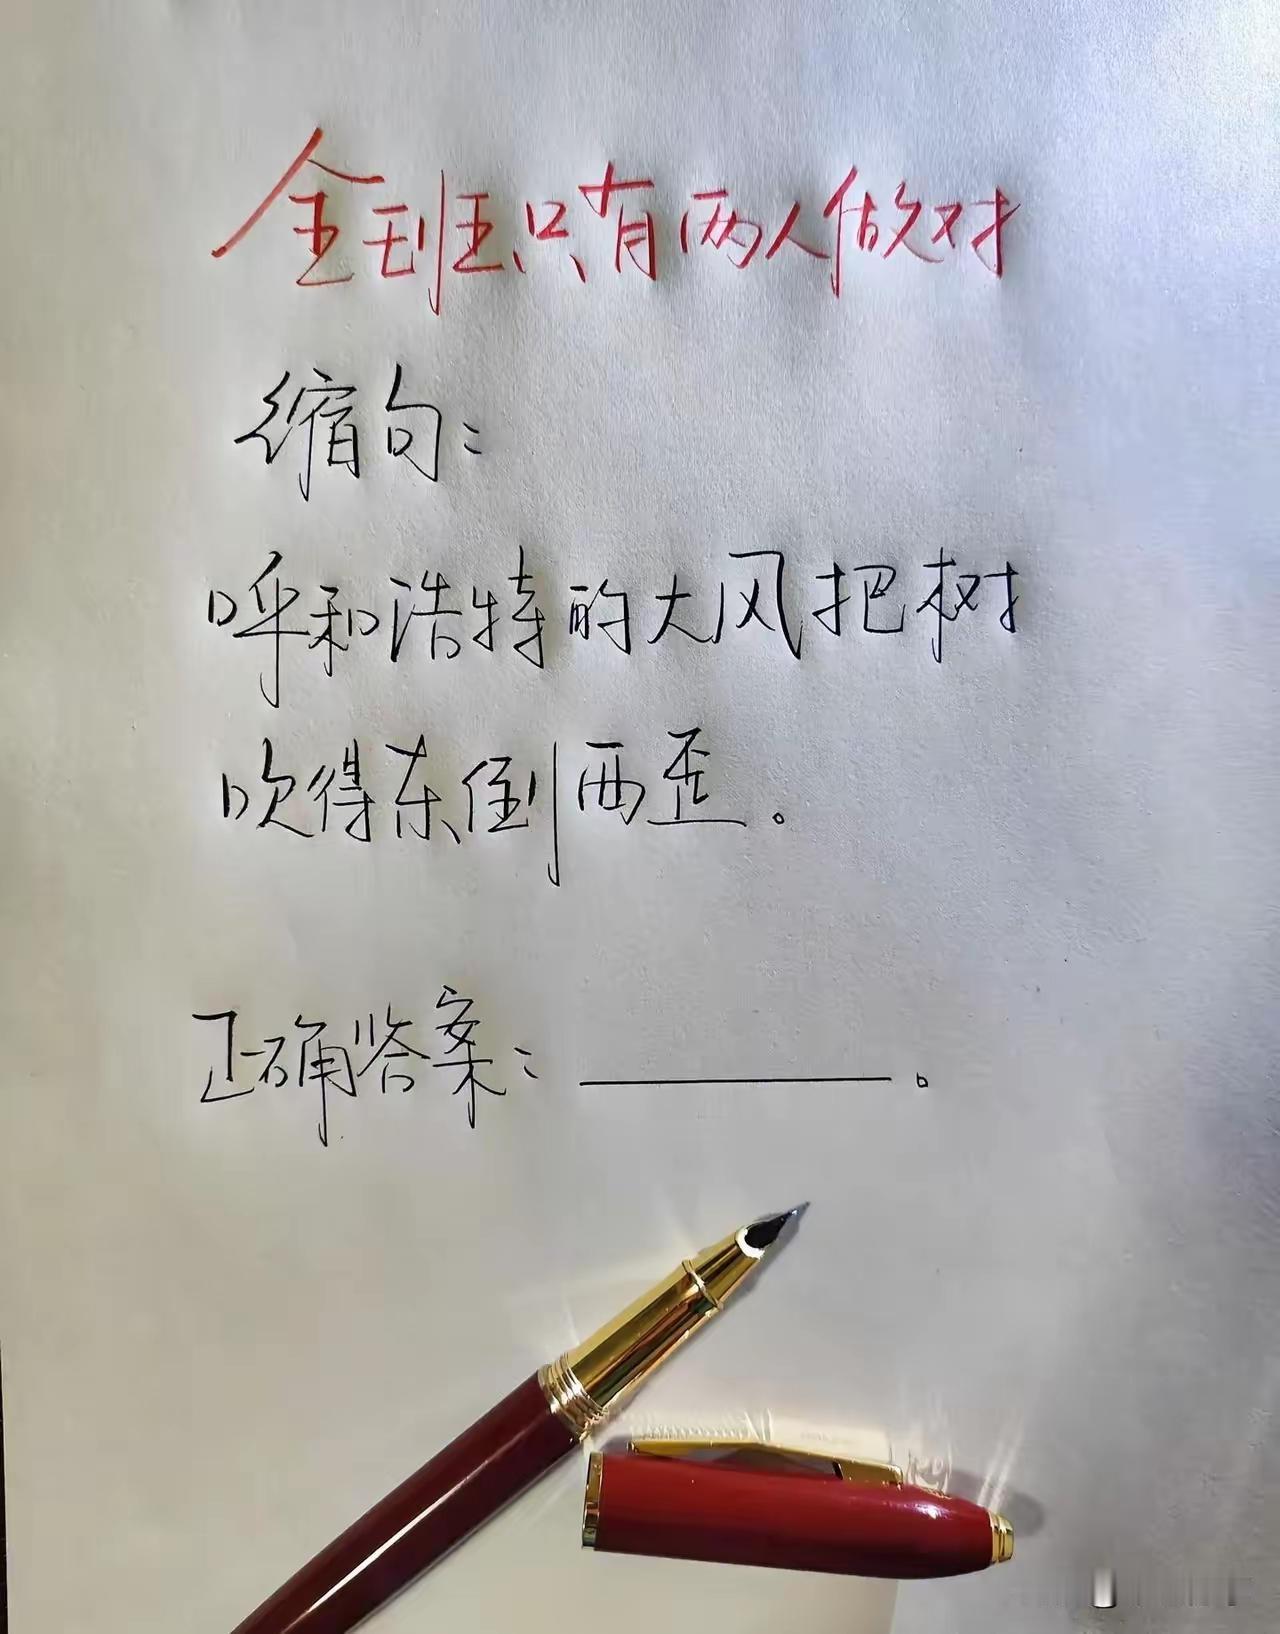 全班只有两人做对
缩句：
呼和浩特的大风把树
吹得东倒西歪。
正确答案：______。